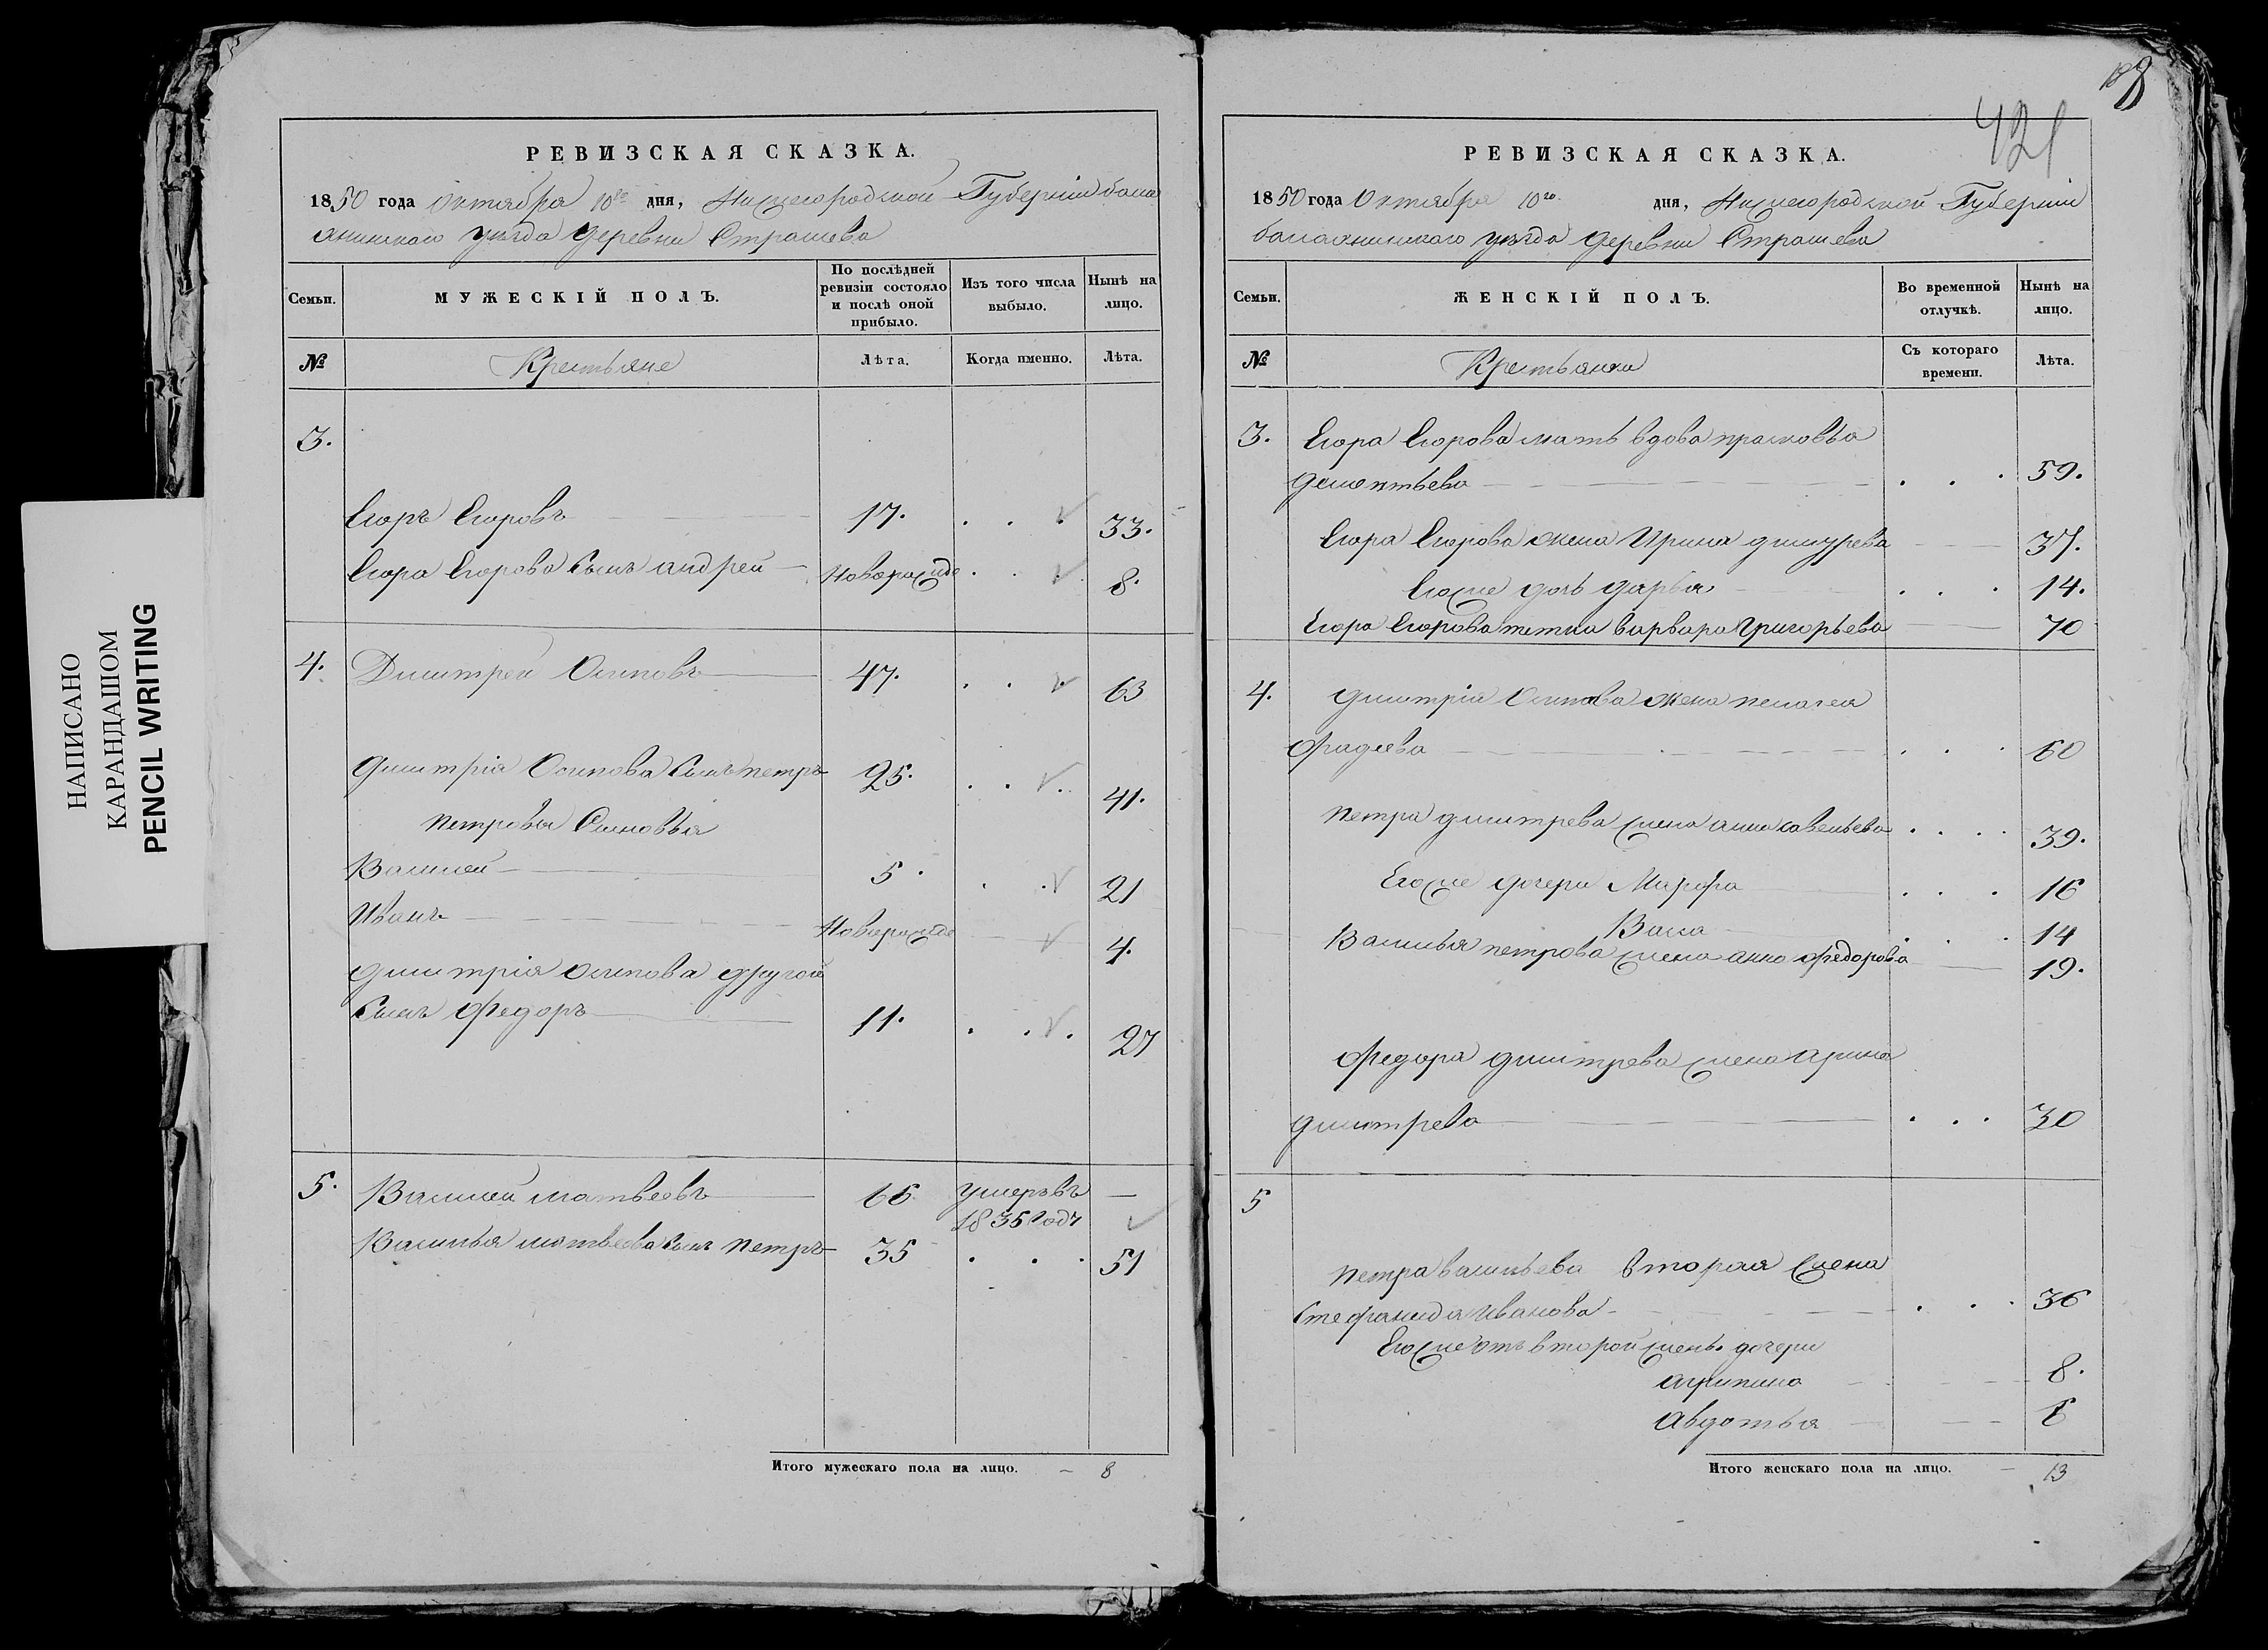 НАПИСАНО
КАРАНДАШОМ
PENCIL WRITING
РЕВИЗСКАЯ СКАЗКА.
1850 года Октября 10го дня, Нижегородской Губернiи бала
хнинскаго уезда деревни Страшева
Семьи.
МУЖЕСКIЙ ПОЛЪ.
По послѣдней ревизiи состояло и послѣ оной прибыло.
Изъ того числа выбыло.
Нынѣ на лицо.
№ Крестьяне Лѣта. Когда именно. Лѣта.
3.
Егоръ Егоровъ 17. . . . 33.
Егора Егорова Сынъ андрей Новорожде . . . 8.
4. Дмитрей Осиповъ 47. . . . 63
дмитрiя Осипова Сынъ петръ 25. . . . 41.
петровы Сыновья
Василей 5. . . 21
Иванъ Новорожде 4.
дмитрiя осипова другой
Сынъ Федоръ 11. . . . 27
5. Василей матвеевъ 66 умеръвъ —
1835 годъ
Василья матвеева сынъ петръ 35 . . . 51
Итого мужескаго пола на лицо. — 8
8
421
РЕВИЗСКАЯ СКАЗКА.
1850 года Октября 10го. дня, Нижегородской Губернiи
балахнинскаго уезда деревни Страшева
Семьи.
ЖЕНСКIЙ ПОЛЪ.
Во временной отлучкѣ.
Нынѣ на лицо.
№ Крестьянки Съ котораго времени. Лѣта.
3. Егора Егорова мать вдова прасковья
дементьева . . . 59.
Егора Егорова жена Ирина 37.
Егоже дочь дарья . . . 14.
Егора Егорова тетка варвара Григорьева 70
4. дмитрiя Осипова жена пелагея
фадеева . . . 60
петра дмитрева жена анна савельева . . . . 39.
Егоже дочери Марфа . . . 16
Васа . . . 14
Василья петрова жена анна федорова 19.
федора дмитрева жена арина
дмитрева . . . 30
5
петра васильева вторая жена
Стефанида Иванова . . . 36
Егоже отъ второй жены дочери
агрипина 8.
авдотья 6
Итого женскаго пола на лицо. — 13